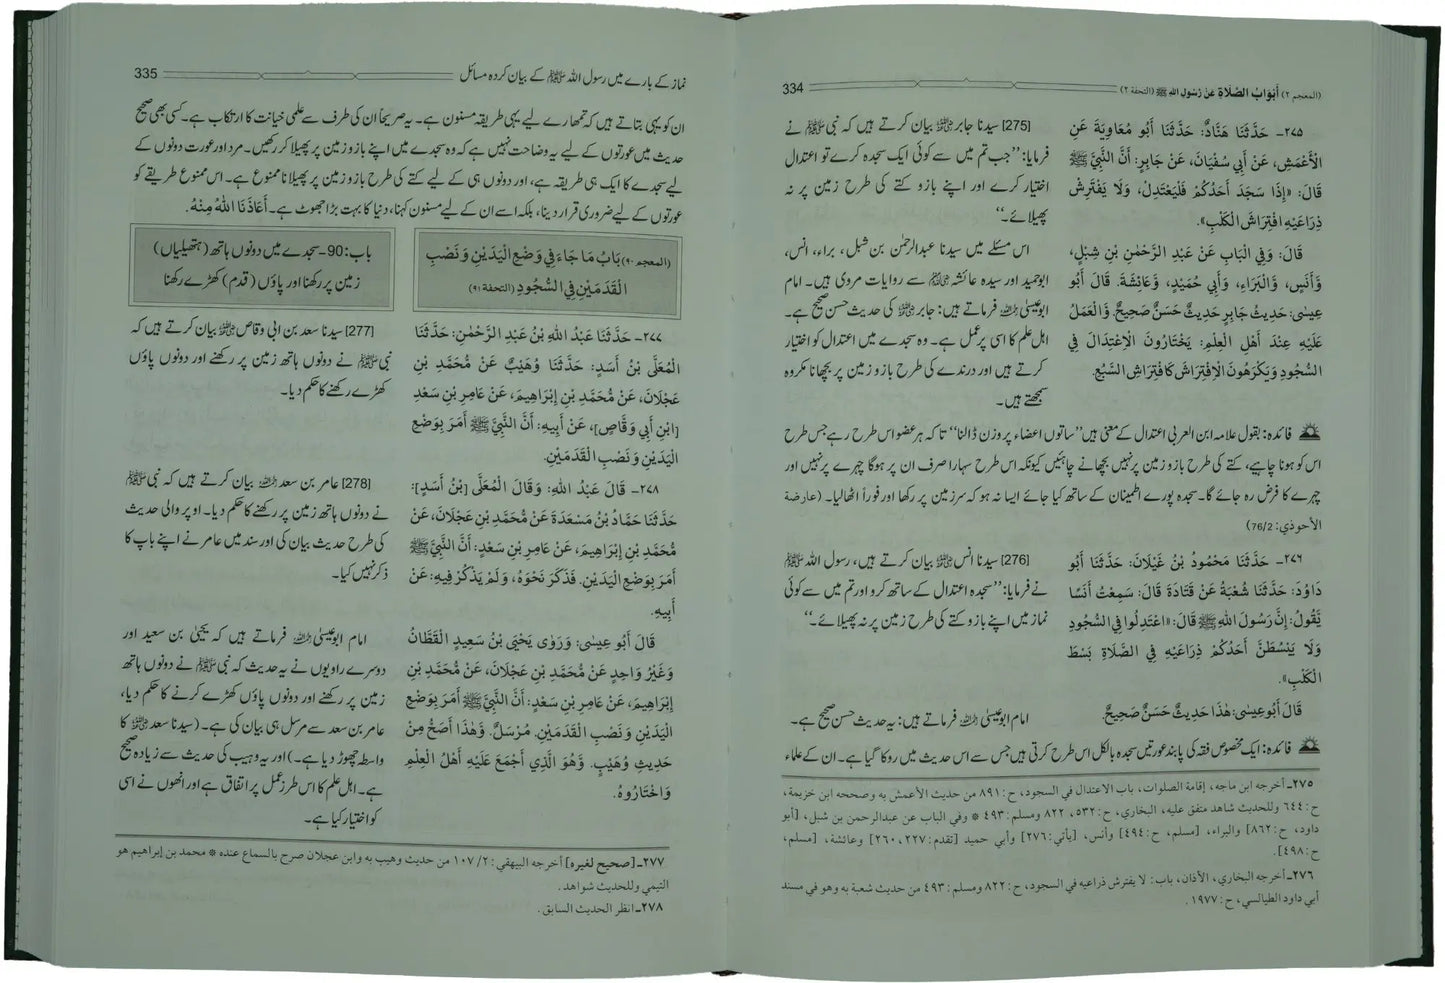 (المعجم ٢) أَبْوَابُ الصَّلَاةِ عَنْ رَسُولِ اللهِ ﷺ (التحفة ٢)
334
٢٧٥ـ حَدَّثَنَا هَنَّادٌ: حَدَّثَنَا أَبُو مُعَاوِيَةَ عَنِ
الْأَعْمَشِ، عَنْ أَبِي سُفْيَانَ، عَنْ جَابِرٍ: أَنَّ النَّبِيَّ ﷺ
قَالَ: «إِذَا سَجَدَ أَحَدُكُمْ فَلْيَعْتَدِلْ، وَلَا يَفْتَرِشْ
ذِرَاعَيْهِ افْتِرَاشَ الْكَلْبِ».
قَالَ: وَفِي الْبَابِ عَنْ عَبْدِ الرَّحْمٰنِ بْنِ شِبْلٍ،
وَأَنَسٍ، وَالْبَرَاءِ، وَأَبِي حُمَيْدٍ، وَعَائِشَةَ. قَالَ أَبُو
عِيسٰى: حَدِيثُ جَابِرٍ حَدِيثٌ حَسَنٌ صَحِيحٌ. وَالْعَمَلُ
عَلَيْهِ عِنْدَ أَهْلِ الْعِلْمِ: يَخْتَارُونَ الْاِعْتِدَالَ فِي
السُّجُودِ وَيَكْرَهُونَ الْاِفْتِرَاشَ كَافْتِرَاشِ السَّبُعِ.
[275] سیدنا جابر رضی اللہ عنہ بیان کرتے ہیں کہ نبی ﷺ نے
فرمایا: ’’جب تم میں سے کوئی ایک سجدہ کرے تو اعتدال
اختیار کرے اور اپنے بازو کتے کی طرح زمین پر نہ
پھیلائے۔‘‘
اس مسئلے میں سیدنا عبدالرحمٰن بن شبل، براء، انس،
ابوحمید اور سیدہ عائشہ رضی اللہ عنہم سے روایات مروی ہیں۔ امام
ابوعیسٰی رحمہ اللہ فرماتے ہیں: جابر رضی اللہ عنہ کی حدیث حسن صحیح ہے۔
اہل علم کا اسی پر عمل ہے۔ وہ سجدے میں اعتدال کو اختیار
کرتے ہیں اور درندے کی طرح بازو زمین پر بچھانا مکروہ
سمجھتے ہیں۔
فائدہ: بقول علامہ ابن العربی اعتدال کے معنی ہیں ’’ساتوں اعضاء پر وزن ڈالنا‘‘ تاکہ ہر عضو اس طرح رہے جس طرح
اس کو ہونا چاہیے، کتے کی طرح بازو زمین پر نہیں بچھانے چاہئیں کیونکہ اس طرح سہارا صرف ان پر ہوگا چہرے پر نہیں اور
چہرے کا فرض رہ جائے گا۔ سجدہ پورے اطمینان کے ساتھ کیا جائے ایسا نہ ہو کہ سر زمین پر رکھا اور فوراً اٹھا لیا۔ (عارضة
الأحوذي: 76/2)
٢٧٦ـ حَدَّثَنَا مَحْمُودُ بْنُ غَيْلَانَ: حَدَّثَنَا أَبُو
دَاوُدَ: حَدَّثَنَا شُعْبَةُ عَنْ قَتَادَةَ قَالَ: سَمِعْتُ أَنَسًا
يَقُولُ: إِنَّ رَسُولَ اللهِ ﷺ قَالَ: «اعْتَدِلُوا فِي السُّجُودِ
وَلَا يَبْسُطَنَّ أَحَدُكُمْ ذِرَاعَيْهِ فِي الصَّلَاةِ بَسْطَ
الْكَلْبِ».
قَالَ أَبُو عِيسٰى: هٰذَا حَدِيثٌ حَسَنٌ صَحِيحٌ.
[276] سیدنا انس رضی اللہ عنہ بیان کرتے ہیں، رسول اللہ ﷺ
نے فرمایا: ’’سجدہ اعتدال کے ساتھ کرو اور تم میں سے کوئی
نماز میں اپنے بازو کتے کی طرح زمین پر نہ پھیلائے۔‘‘
امام ابوعیسٰی رحمہ اللہ فرماتے ہیں: یہ حدیث حسن صحیح ہے۔
فائدہ: ایک مخصوص فقہ کی پابند عورتیں سجدہ بالکل اس طرح کرتی ہیں جس سے اس حدیث میں روکا گیا ہے۔ ان کے علماء
٢٧٥ـ أخرجه ابن ماجه، إقامة الصلوات، باب الاعتدال في السجود، ح: ٨٩١ من حديث الأعمش به وصححه ابن خزيمة،
ح: ٦٤٤ وللحديث شاهد متفق عليه، البخاري، ح: ٥٣٢، ٨٢٢ ومسلم: ٤٩٣ * وفي الباب عن عبدالرحمن بن شبل، [أبو
داود، ح: ٨٦٢] والبراء، [مسلم، ح: ٤٩٤] وأنس، [يأتي: ٢٧٦] وأبي حميد [تقدم: ٢٢٧، ٢٦٠] وعائشة، [مسلم،
ح: ٤٩٨].
٢٧٦ـ أخرجه البخاري، الأذان، باب: لا يفترش ذراعيه في السجود، ح: ٨٢٢ ومسلم: ٤٩٣ من حديث شعبة به وهو في مسند
أبي داود الطيالسي، ح: ١٩٧٧.
نماز کے بارے میں رسول اللہ ﷺ کے بیان کردہ مسائل
335
ان کو یہی بتاتے ہیں کہ تمھارے لیے یہی طریقہ مسنون ہے۔ یہ صریحاً ان کی طرف سے علمی خیانت کا ارتکاب ہے۔ کسی بھی صحیح
حدیث میں عورتوں کے لیے یہ وضاحت نہیں ہے کہ وہ سجدے میں اپنے بازو زمین پر پھیلا کر رکھیں۔ مرد اور عورت دونوں کے
لیے سجدے کا ایک ہی طریقہ ہے، اور دونوں ہی کے لیے کتے کی طرح بازو زمین پر پھیلانا ممنوع ہے۔ اس ممنوع طریقے کو
عورتوں کے لیے ضروری قرار دینا، بلکہ اسے ان کے لیے مسنون کہنا، دنیا کا بہت بڑا جھوٹ ہے۔ أَعَاذَنَا اللهُ مِنْهُ.
(المعجم ٩٠) بَابُ مَا جَاءَ فِي وَضْعِ الْيَدَيْنِ وَنَصْبِ
الْقَدَمَيْنِ فِي السُّجُودِ (التحفة ٩١)
باب: 90- سجدے میں دونوں ہاتھ (ہتھیلیاں)
زمین پر رکھنا اور پاؤں (قدم) کھڑے رکھنا
٢٧٧ـ حَدَّثَنَا عَبْدُ اللهِ بْنُ عَبْدِ الرَّحْمٰنِ: حَدَّثَنَا
الْمُعَلَّى بْنُ أَسَدٍ: حَدَّثَنَا وُهَيْبٌ عَنْ مُحَمَّدِ بْنِ
عَجْلَانَ، عَنْ مُحَمَّدِ بْنِ إِبْرَاهِيمَ، عَنْ عَامِرِ بْنِ سَعْدِ
[ابْنِ أَبِي وَقَّاصٍ]، عَنْ أَبِيهِ: أَنَّ النَّبِيَّ ﷺ أَمَرَ بِوَضْعِ
الْيَدَيْنِ وَنَصْبِ الْقَدَمَيْنِ.
[277] سیدنا سعد بن ابی وقاص رضی اللہ عنہ بیان کرتے ہیں کہ
نبی ﷺ نے دونوں ہاتھ زمین پر رکھنے اور دونوں پاؤں
کھڑے رکھنے کا حکم دیا۔
٢٧٨ـ قَالَ عَبْدُ اللهِ: وَقَالَ الْمُعَلَّى [بْنُ أَسَدٍ]:
حَدَّثَنَا حَمَّادُ بْنُ مَسْعَدَةَ عَنْ مُحَمَّدِ بْنِ عَجْلَانَ، عَنْ
مُحَمَّدِ بْنِ إِبْرَاهِيمَ، عَنْ عَامِرِ بْنِ سَعْدٍ: أَنَّ النَّبِيَّ ﷺ
أَمَرَ بِوَضْعِ الْيَدَيْنِ. فَذَكَرَ نَحْوَهُ، وَلَمْ يَذْكُرْ فِيهِ: عَنْ
أَبِيهِ.
قَالَ أَبُو عِيسٰى: وَرَوٰى يَحْيَى بْنُ سَعِيدٍ الْقَطَّانُ
وَغَيْرُ وَاحِدٍ عَنْ مُحَمَّدِ بْنِ عَجْلَانَ، عَنْ مُحَمَّدِ بْنِ
إِبْرَاهِيمَ، عَنْ عَامِرِ بْنِ سَعْدٍ: أَنَّ النَّبِيَّ ﷺ أَمَرَ بِوَضْعِ
الْيَدَيْنِ وَنَصْبِ الْقَدَمَيْنِ. مُرْسَلٌ. وَهٰذَا أَصَحُّ مِنْ
حَدِيثِ وُهَيْبٍ. وَهُوَ الَّذِي أَجْمَعَ عَلَيْهِ أَهْلُ الْعِلْمِ
وَاخْتَارُوهُ.
[278] عامر بن سعد رحمہ اللہ بیان کرتے ہیں کہ نبی ﷺ
نے دونوں ہاتھ زمین پر رکھنے کا حکم دیا۔ اوپر والی حدیث
کی طرح حدیث بیان کی اور سند میں عامر نے اپنے باپ کا
ذکر نہیں کیا۔
امام ابوعیسٰی رحمہ اللہ فرماتے ہیں کہ یحییٰ بن سعید اور
دوسرے راویوں نے یہ حدیث کہ نبی ﷺ نے دونوں ہاتھ
زمین پر رکھنے اور دونوں پاؤں کھڑے کرنے کا حکم دیا،
عامر بن سعد سے مرسل ہی بیان کی ہے۔ (سیدنا سعد رضی اللہ عنہ کا
واسطہ چھوڑ دیا ہے۔) اور یہ وہیب کی حدیث سے زیادہ صحیح
ہے۔ اہل علم کا اس طرز عمل پر اتفاق ہے اور انھوں نے اسی
کو اختیار کیا ہے۔
٢٧٧ـ [صحيح لغيره] أخرجه البيهقي: ٢/ ١٠٧ من حديث وهيب به وابن عجلان صرح بالسماع عنده * محمد بن إبراهيم هو
التيمي وللحديث شواهد.
٢٧٨ـ انظر الحديث السابق.